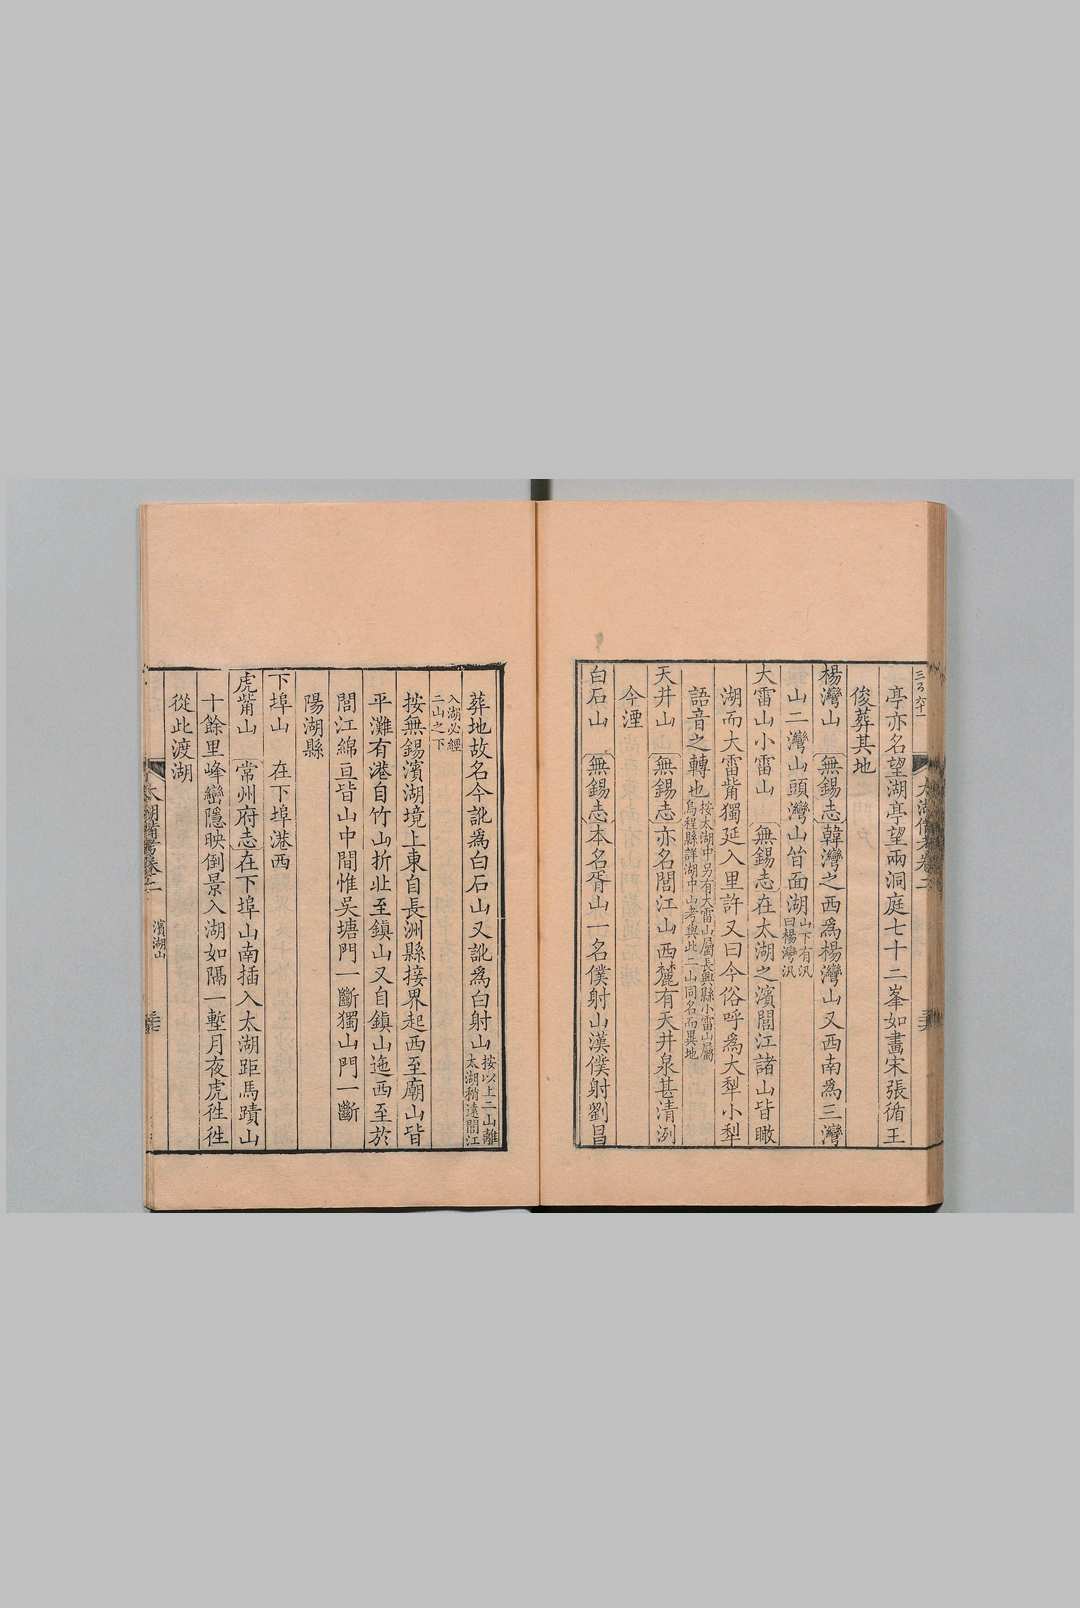 亭亦名望湖亭望兩洞庭七十二峯如畫宋張循王
俊葬其地
楊灣山 無錫志韓灣之西爲楊灣山又西南爲三灣
山二灣山頭灣山皆面湖山下有汛曰楊灣汛
大雷山小雷山 無錫志在太湖之濱閭江諸山皆瞰
湖而大雷觜獨延入里許又曰今俗呼爲大犁小犁
語音之轉也按太湖中另有大雷山屬長興縣小雷山屬
烏程縣詳湖中山考與此二山同名而異地
天井山 無錫志亦名閭江山西麓有天井泉甚清洌
今湮
白石山 無錫志本名胥山一名僕射山漢僕射劉昌
葬地故名今訛爲白石山又訛爲白射山按以上二山離
太湖稍遠閭江
入湖必經
二山之下
按無錫濱湖境上東自長洲縣接界起西至廟山皆
平灘有港自竹山折北至鎮山又自鎮山迤西至於
閭江綿亘皆山中間惟吳塘門一斷獨山門一斷
陽湖縣
下埠山 在下埠港西
虎觜山 常州府志在下埠山南插入太湖距馬蹟山
十餘里峰巒隱映倒景入湖如隔一塹月夜虎往往
從此渡湖
太湖備考卷二 濱湖山